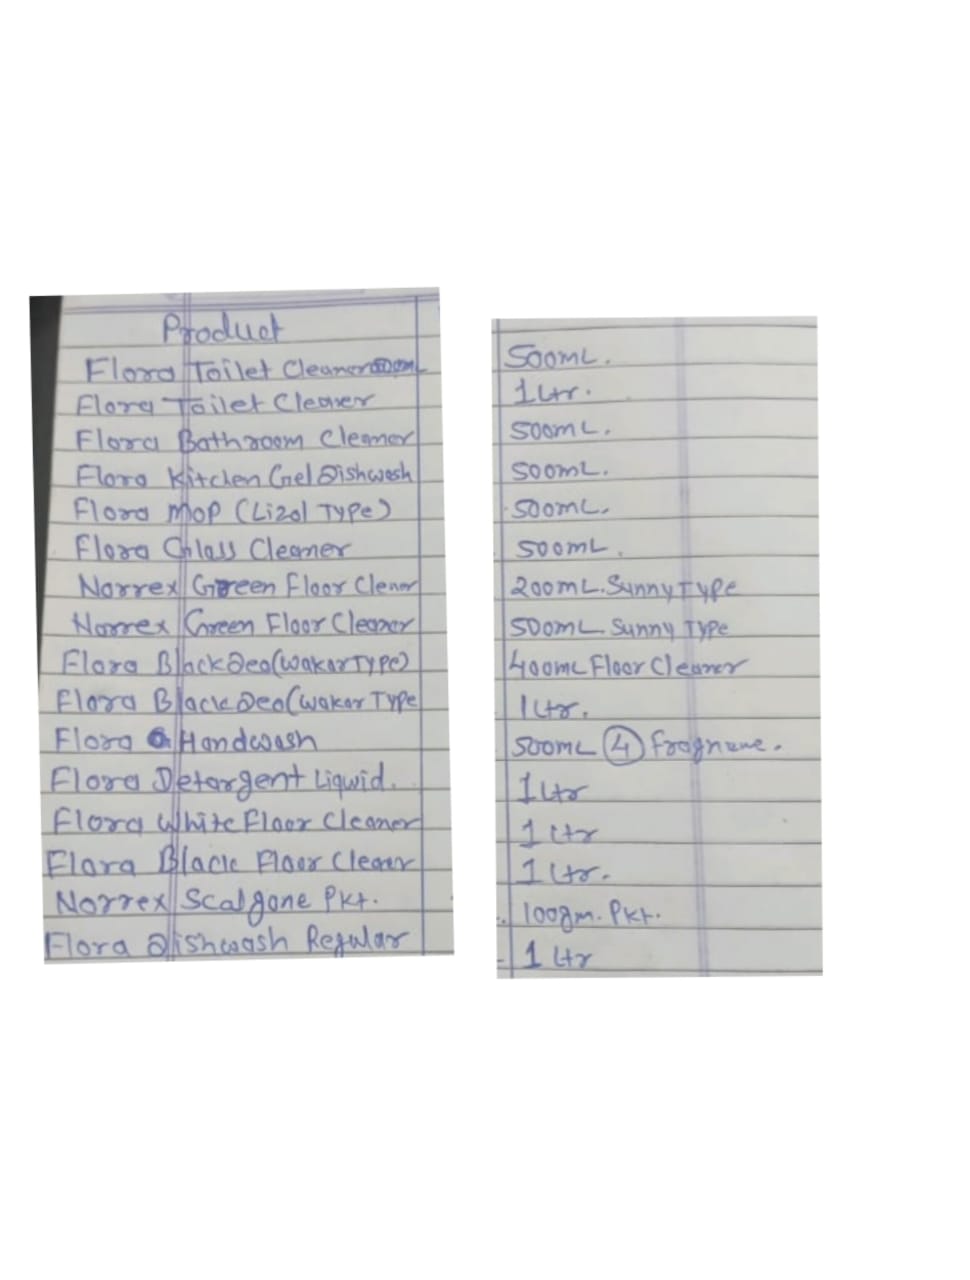 Product
Flora Toilet Cleaner 500mL
Flora Toilet Cleaner
Flora Bathroom Cleaner
Flora Kitchen Gel Dishwash
Flora Mop (Lizol Type)
Flora Glass Cleaner
Norrex Green Floor Clener
Norrex Green Floor Cleaner
Flora Black Deo (Wakar Type)
Flora Black Deo (Wakar Type
Flora Handwash
Flora Detergent Liquid.
Flora White Floor Cleaner
Flora Black Floor Cleaner
Norrex Scalgone Pkt.
Flora Dishwash Regular
500mL.
1 Ltr.
500mL.
500mL.
500mL.
500mL.
200mL. Sunny Type
500mL Sunny Type
400mL Floor Cleaner
1 Ltr.
500mL 4 fragnane.
1 Ltr
1 Ltr
1 Ltr.
100gm. Pkt.
1 Ltr